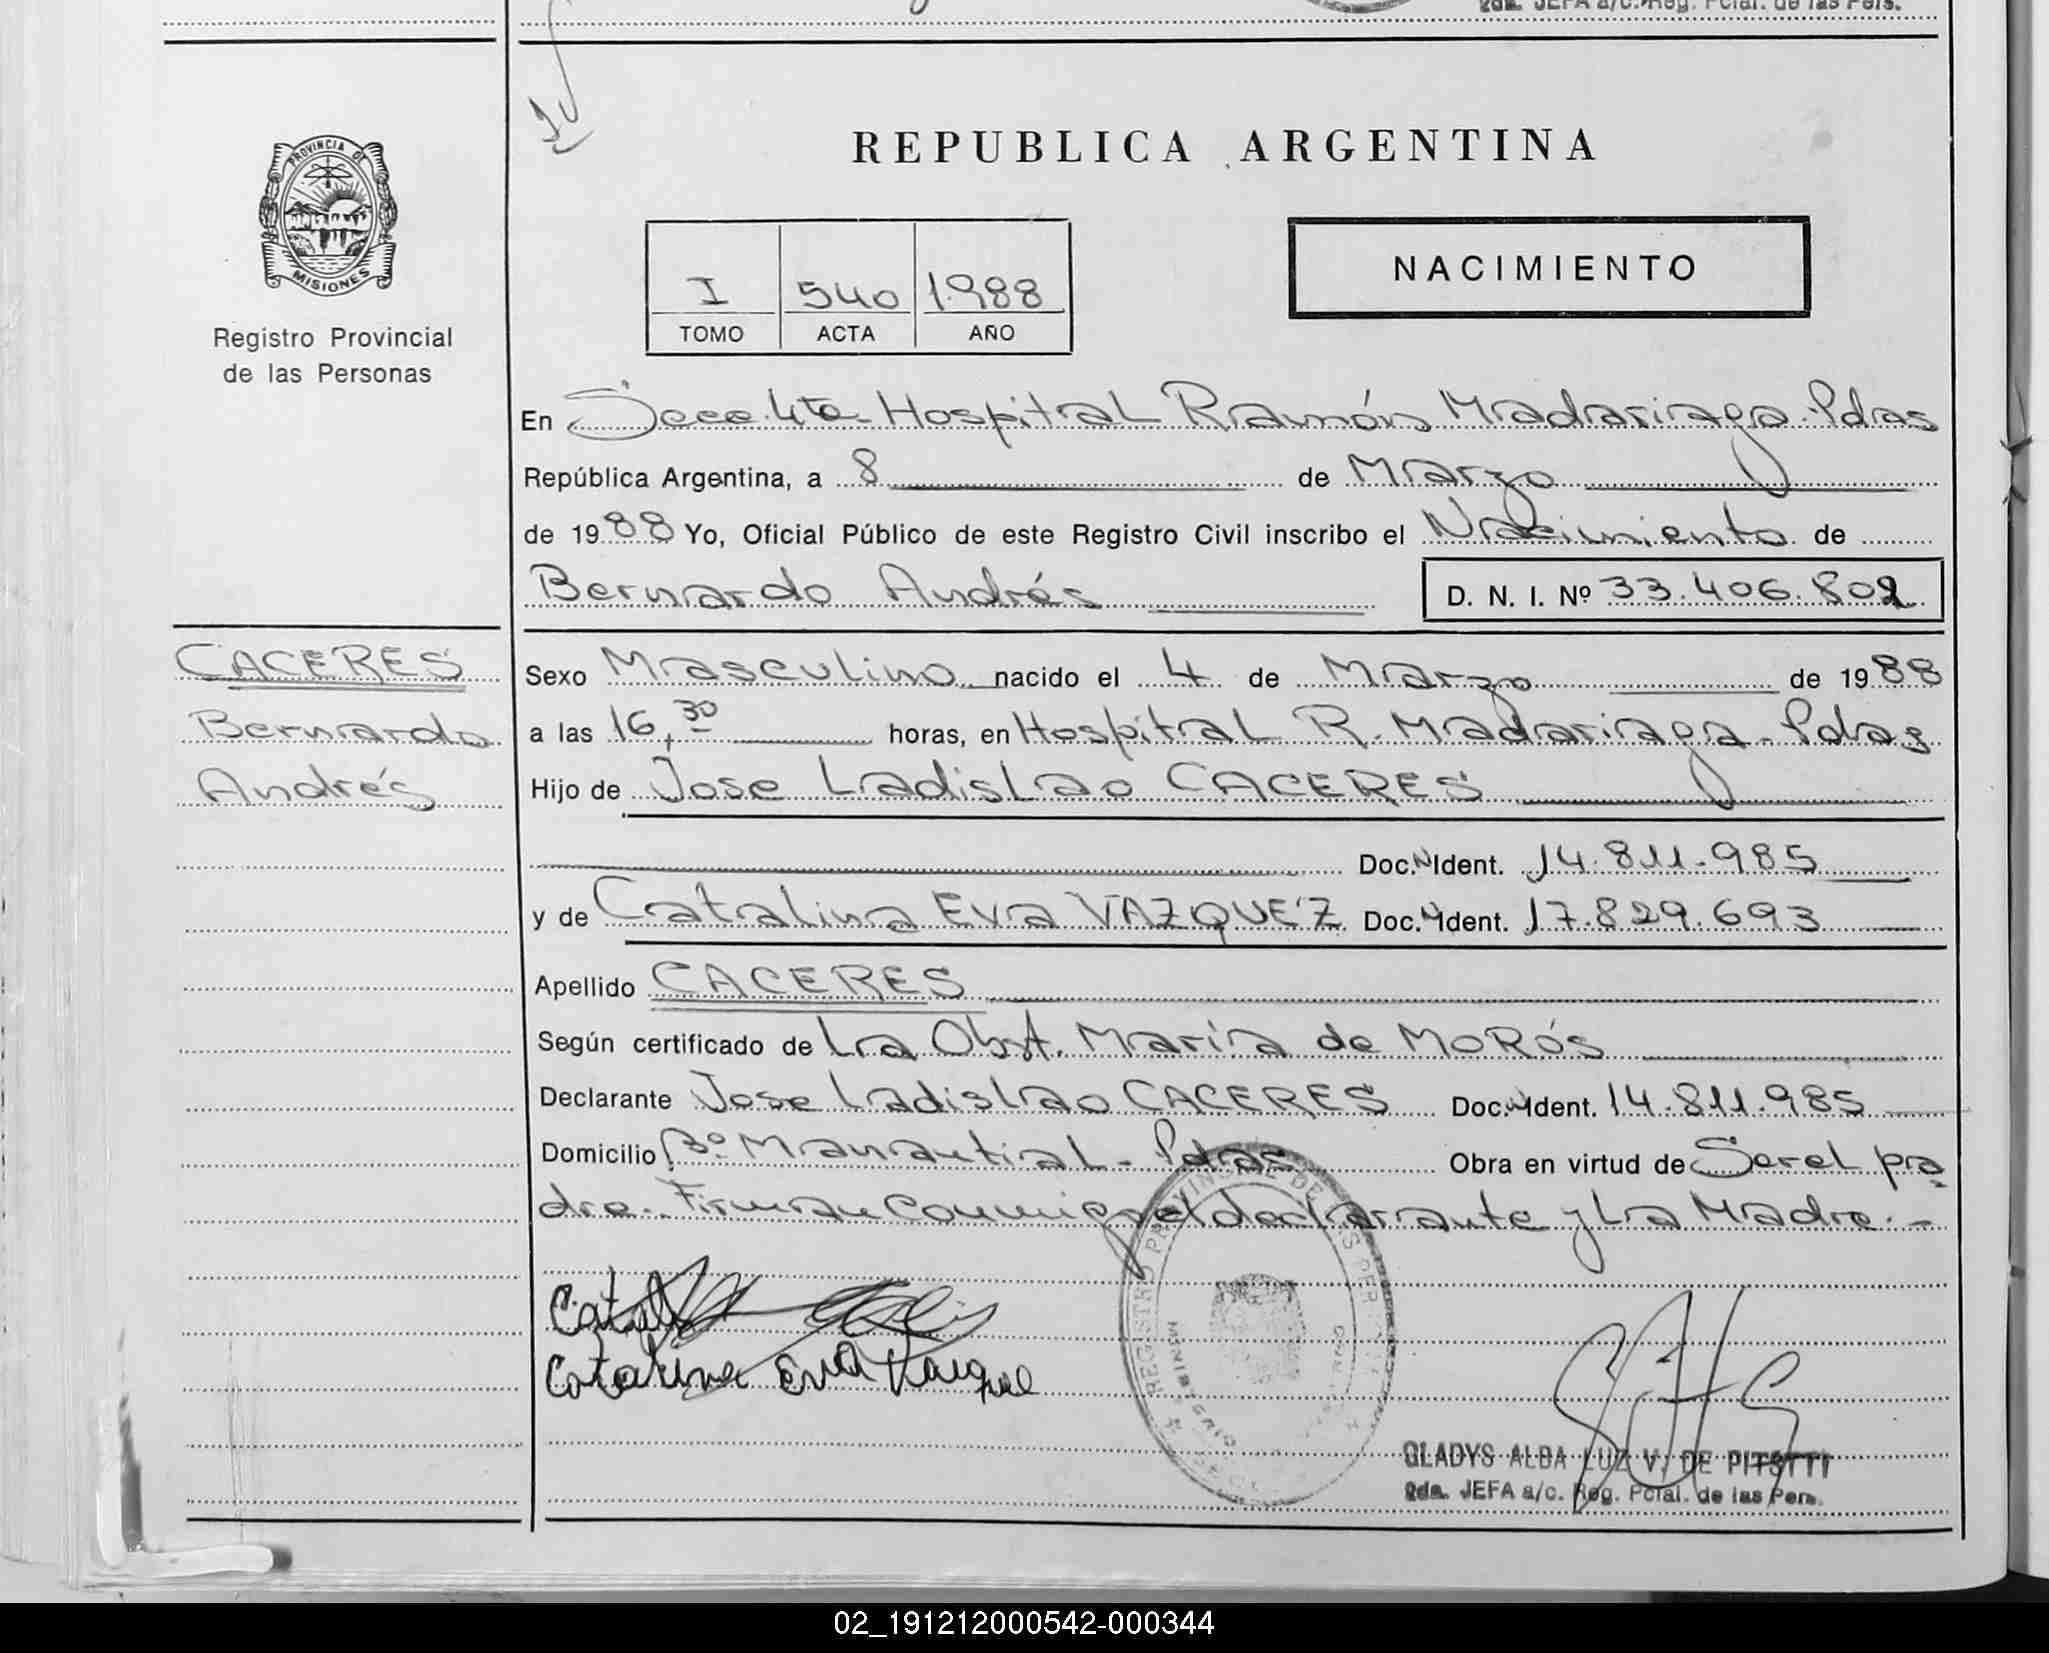 2da. JEFA a/c. Reg. Pcial. de las Pers.
PROVINCIA DE
MISIONES
Registro Provincial
de las Personas
REPUBLICA ARGENTINA
I 540 1988
TOMO ACTA AÑO
NACIMIENTO
En Secc. 4ta Hospital Ramón Madariaga - Pdas
República Argentina, a 8 de Marzo
de 1988 Yo, Oficial Público de este Registro Civil inscribo el Nacimiento de
Bernardo Andrés D. N. I. Nº 33.406.802
CACERES
Bernardo
Andrés
Sexo Masculino nacido el 4 de Marzo de 1988
a las 16,30 horas, en Hospital R. Madariaga - Pdas
Hijo de Jose Ladislao CACERES
Doc. N Ident. 14.811.985
y de Catalina Eva VAZQUEZ Doc. N Ident. 17.829.693
Apellido CACERES
Según certificado de La Obst. María de MoRós
Declarante Jose Ladislao CACERES Doc. N Ident. 14.811.985
Domicilio Bº Manantial - Pdas Obra en virtud de Ser el pa
dre. Firman Conmigo el declarante y La Madre. -
Catal
Catalina Eva Vazquel
REGISTRO PROVINCIAL DE LAS PERSONAS
GLADYS ALBA LUZ V. DE PITSTTI
2da. JEFA a/c. Reg. Pcial. de las Pers.
02_191212000542-000344